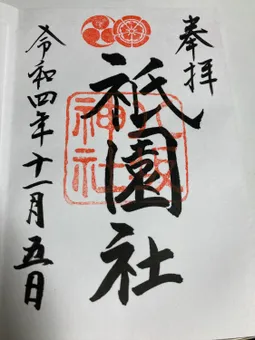 奉拝
祇園社
令和四年十一月五日
神社